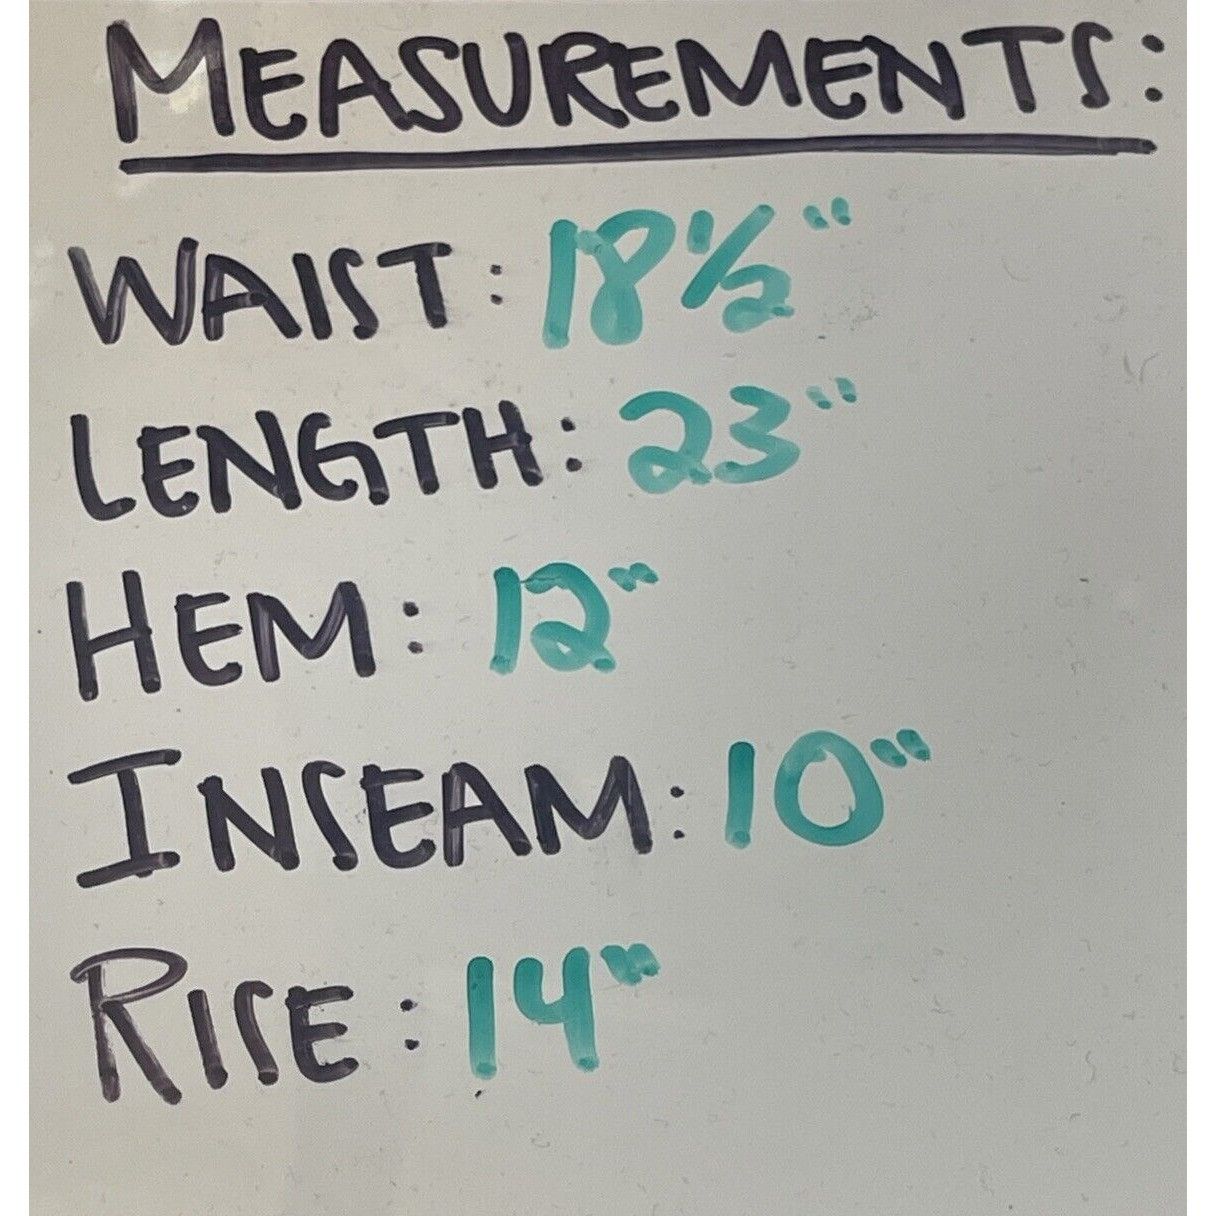 MEASUREMENTS:
WAIST: 18 1/2"
LENGTH: 23"
HEM: 12"
INSEAM: 10"
RISE: 14"